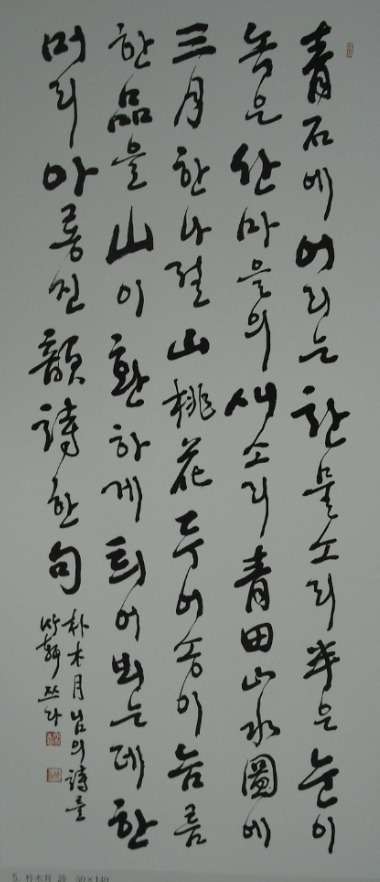 青石에어리는찬물소리半은눈이
녹은산마을의새소리青田山水圖에
三月한나절山桃花두어송이늠름
한品을山이환하게틔어뵈는데한
머리아롱진韻詩한句
朴木月님의詩를
竹軒쓰다
5. 朴木月 詩 50×140